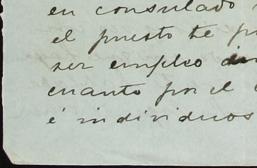 en consulado
el puesto te
ser empleo
cuanto por el
é individuos